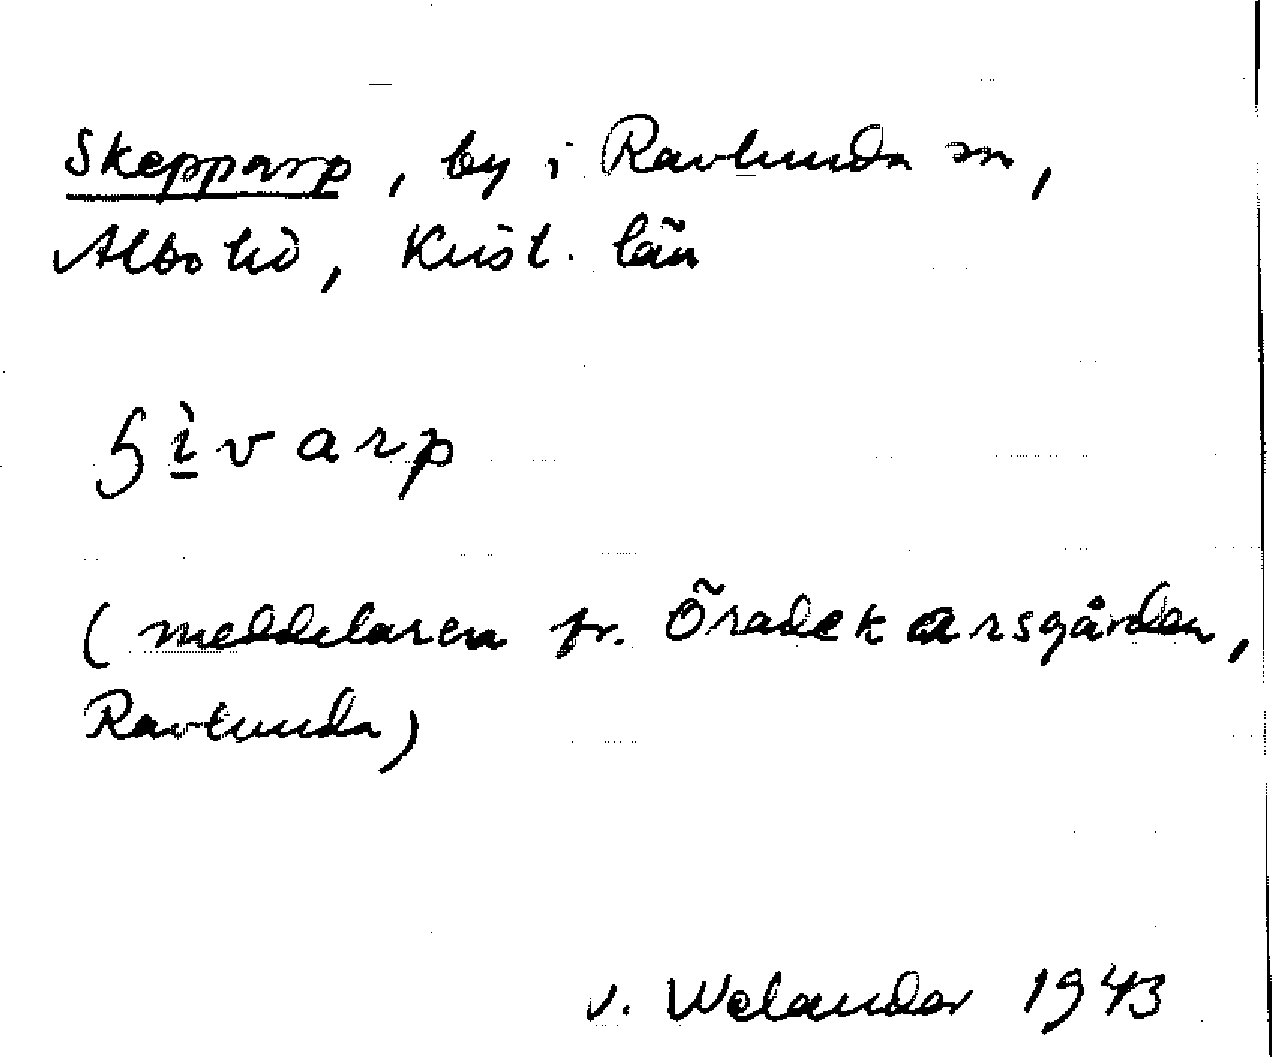 Skepparp, by i Ravlunda sn,
Albo hd, Krist. län
ʃì̠varp
(meddelaren fr. Öradekarsgården,
Ravlunda)
v. Welander 1943